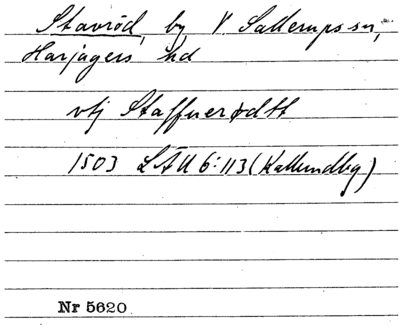 Stavröd, by, V Sallerups sn,
Harjagers hd
vtj Staffuerødtt
1503 LÄU 6:113 (Kallundbg)
Nr 5620